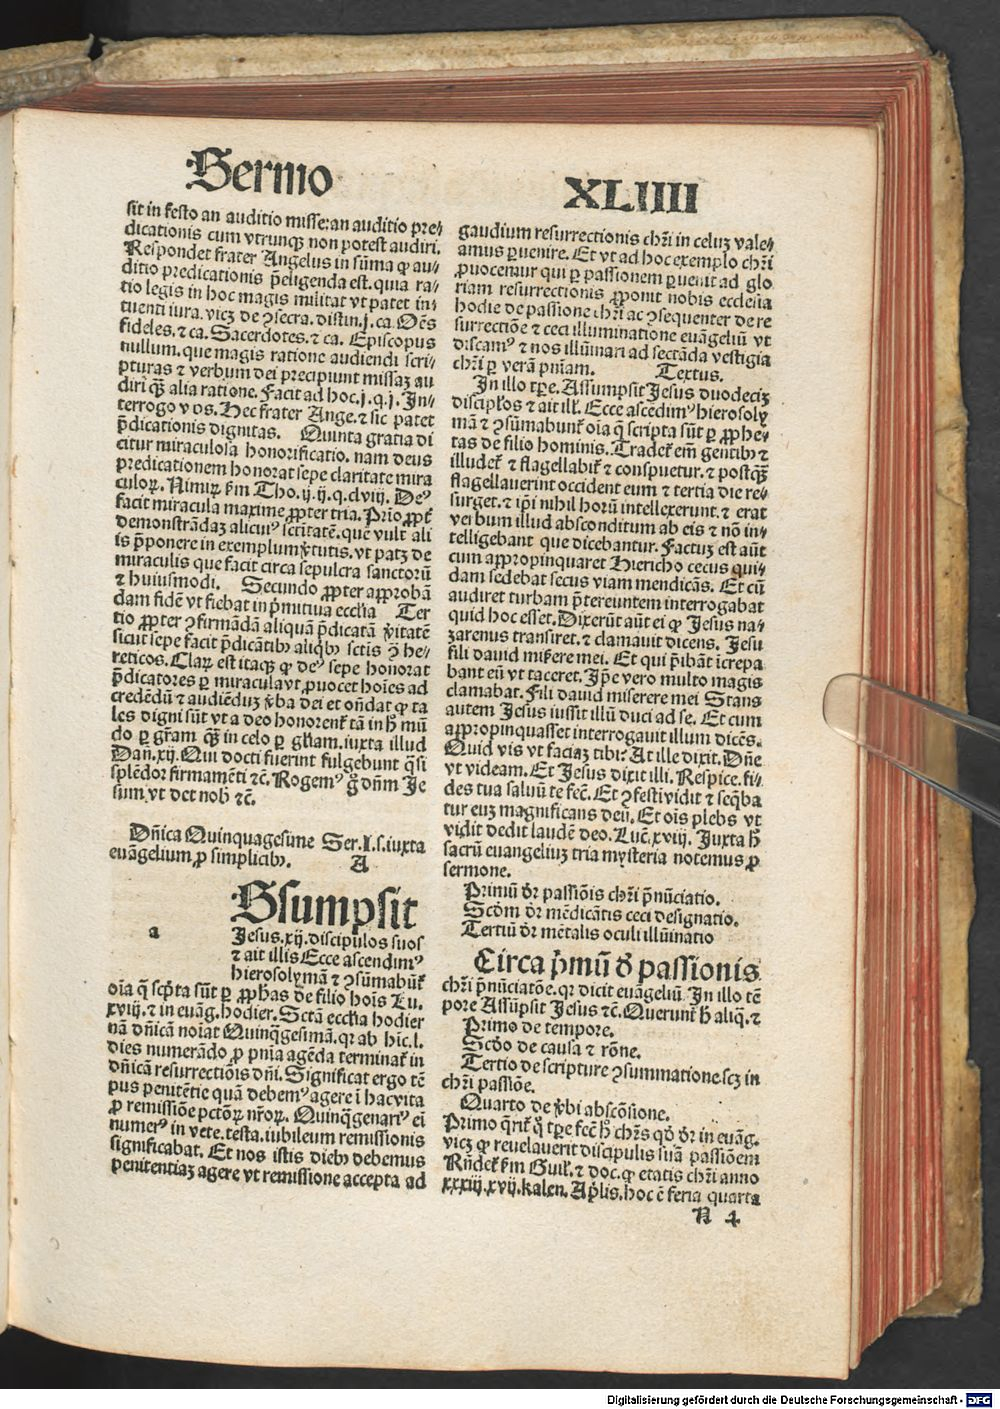 Sermo
XLIIII
sit in festo an auditio misse: an auditio pre⸗
dicationis cum vtrunqꝫ non potest audiri.
Respondet frater Angelus in sūma ꝙ au⸗
ditio predicationis p̄eligenda est. quia ra⸗
tio legis in hoc magis militat vt patet in⸗
tuenti iura. vicꝫ de ꝯsecra. distin. j. ca. Oēs
fideles. ⁊ ca. Sacerdotes. ⁊ ca. Episcopus
nullum. que magis ratione audiendi scri⸗
pturas ⁊ verbum dei precipiunt missaꝫ au
diri qꝫ̄ alia ratione. Facit ad hoc. j. q. j. In⸗
terrogo vos. Hec frater Ange. ⁊ sic patet
p̄dicationis dignitas. Quinta gratia di
citur miraculosa honorificatio. nam deus
predicationem honorat sepe claritate mira
culoꝝ. Nimiꝝ ẜm Tho. ij. ij. q. clviij. Deꝰ
facit miracula maxime ꝓpter tria. Prīo ꝓpt̄
demonstrādaꝫ alicuiꝰ sctītatē. que vult ali
is p̄ponere in exemplum v̓tutis. vt patꝫ de
miraculis que facit circa sepulcra sanctorū
⁊ huiusmodi. Secundo ꝓpter approbā
dam fidē vt fiebat in p̓mitiua eccl̓ia Ter
tio ꝓpter ꝯfirmādā aliquā p̄dicatā v̓itatē
sicut sepe facit p̄dicātibꝰ aliqbꝰ sctīs ꝯ̄ he⸗
reticos. Claꝝ est itaqꝫ ꝙ deꝰ sepe honorat
p̄dicatores ꝑ miracula vt ꝓuocet hoīes ad
credēdū ⁊ audiēduꝫ v̓ba dei et on̄dat ꝙ ta
les digni sūt vt a deo honorent̄ tā in h̄ mū
do ꝑ gr̄am qꝫ̄ in celo ꝑ gl̓iam. iuxta illud
Dan. xij. Qui docti fuerint fulgebunt q̄si
splēdor firmamēti ⁊c̄. Rogemꝰ g̊ dn̄m Je
sum vt det nob̄ ⁊c̄.
Dn̄ica Quinquagesime Ser. I. s. iuxta
euāgelium ꝓ simplicibꝰ. A
a
Ssumpsit
Jesus. xij. discipulos suos
⁊ ait illis Ecce ascendimꝰ
hierosolymā ⁊ ꝯsūmabūt̄
oīa q̄ scp̄ta sūt ꝑ ꝓphas de filio hoīs Lu.
xviij. ⁊ in euāg. hodier. Sctā eccl̓ia hodier
nā dn̄icā noīat Quinq̄gesimā. qꝛ ab hīc. l.
dies numerādo ꝓ pn̄ia agēda terminat̄ in
dn̄icā resurrectiōis dn̄i. Significat ergo tē
pus penitētie quā debemꝰ agere ī hac vita
ꝓ remissiōe pctōꝝ nr̄oꝝ. Quinq̄genariꝰ eī
numerꝰ in vete. testa. iubileum remissionis
significabat. Et nos istis diebꝰ debemus
penitentiaꝫ agere vt remissione accepta ad
gaudium resurrectionis chr̄i in celuꝫ vale⸗
amus ꝑuenire. Et vt ad hoc exemplo chr̄i
ꝓuocemur qui ꝑ passionem ꝑuenit ad glo
riam resurrectionis ꝓponit nobis ecclesia
hodie de passione chr̄i ac ꝯsequenter de re
surrectiōe ⁊ ceci illuminatione euāgeliū vt
discamꝰ ⁊ nos illūinari ad sectāda vestigia
chr̄i ꝑ verā pn̄iam. Textus.
In illo tꝑe. Assumpsit Jesus duodeciꝫ
discipl̓os ⁊ ait ill̓. Ecce ascēdimꝰ hierosoly
mā ⁊ ꝯsūmabunt̄ oīa q̄ scripta sūt ꝑ ꝓphe⸗
tas de filio hominis. Tradet̄ em̄ gentibꝰ ⁊
illudet̄ ⁊ flagellabit̄ ⁊ conspuetur. ⁊ postqꝫ̄
flagellauerint occident eum ⁊ tertia die re⸗
surget. ⁊ ip̄i nihil horū intellexerunt. ⁊ erat
verbum illud absconditum ab eis ⁊ nō in⸗
telligebant que dicebantur. Factuꝫ est aūt
cum appropinquaret Hiericho cecus qui⸗
dam sedebat secus viam mendicās. Et cū
audiret turbam p̄tereuntem interrogabat
quid hoc esset. Dixerūt aūt ei ꝙ Jesus na⸗
zarenus transiret. ⁊ clamauit dicens. Jesu
fili dauid misere mei. Et qui p̄ibāt īcrepa
bant eū vt taceret. Ip̄e vero multo magis
clamabat. Fili dauid miserere mei Stans
autem Jesus iussit illū duci ad se. Et cum
appropinquasset interrogauit illum dicēs.
Quid vis vt faciaꝫ tibi? At ille dixit. Dn̄e
vt videam. Et Jesus dixit illi. Respice. fi⸗
des tua saluū te fec̄. Et ꝯfesti vidit ⁊ seq̄ba
tur euꝫ magnificans deū. Et oīs plebs vt
vidit dedit laudē deo. Luc̄. xviij. Juxta h̄
sacrū euangeliuꝫ tria mysteria notemus ꝓ
sermone.
Primū dr̄ passiōis chr̄i p̄nūciatio.
Scd̄m dr̄ mēdicātis ceci designatio.
Tertiū dr̄ mētalis oculi illūinatio
Circa p̓mū d̓ passionis
chr̄i p̄nūciatōe. qꝛ dicit euāgeliū. In illo tē
pore Assūpsit Jesus ⁊c̄. Querunt̄ h̄ aliq̄. ⁊
Primo de tempore.
Scd̄o de causa ⁊ rōne.
Tertio de scripture ꝯsummatione. scꝫ in
chr̄i passiōe.
Quarto de v̓bi abscōsione.
Primo q̄rit̄ q̊ tꝑe fec̄ h̄ chr̄s qd̓ dr̄ in euāg.
vicꝫ ꝙ reuelauerit discipulis suā passiōem
Rn̄det̄ ẜm Guil̓. ⁊ doc. ꝙ etatis chr̄i anno
xxxiij. xvij. kalen. Ap̓lis. hoc ē feria quarta
N 4
Digitalisierung gefördert durch die Deutsche Forschungsgemeinschaft - DFG